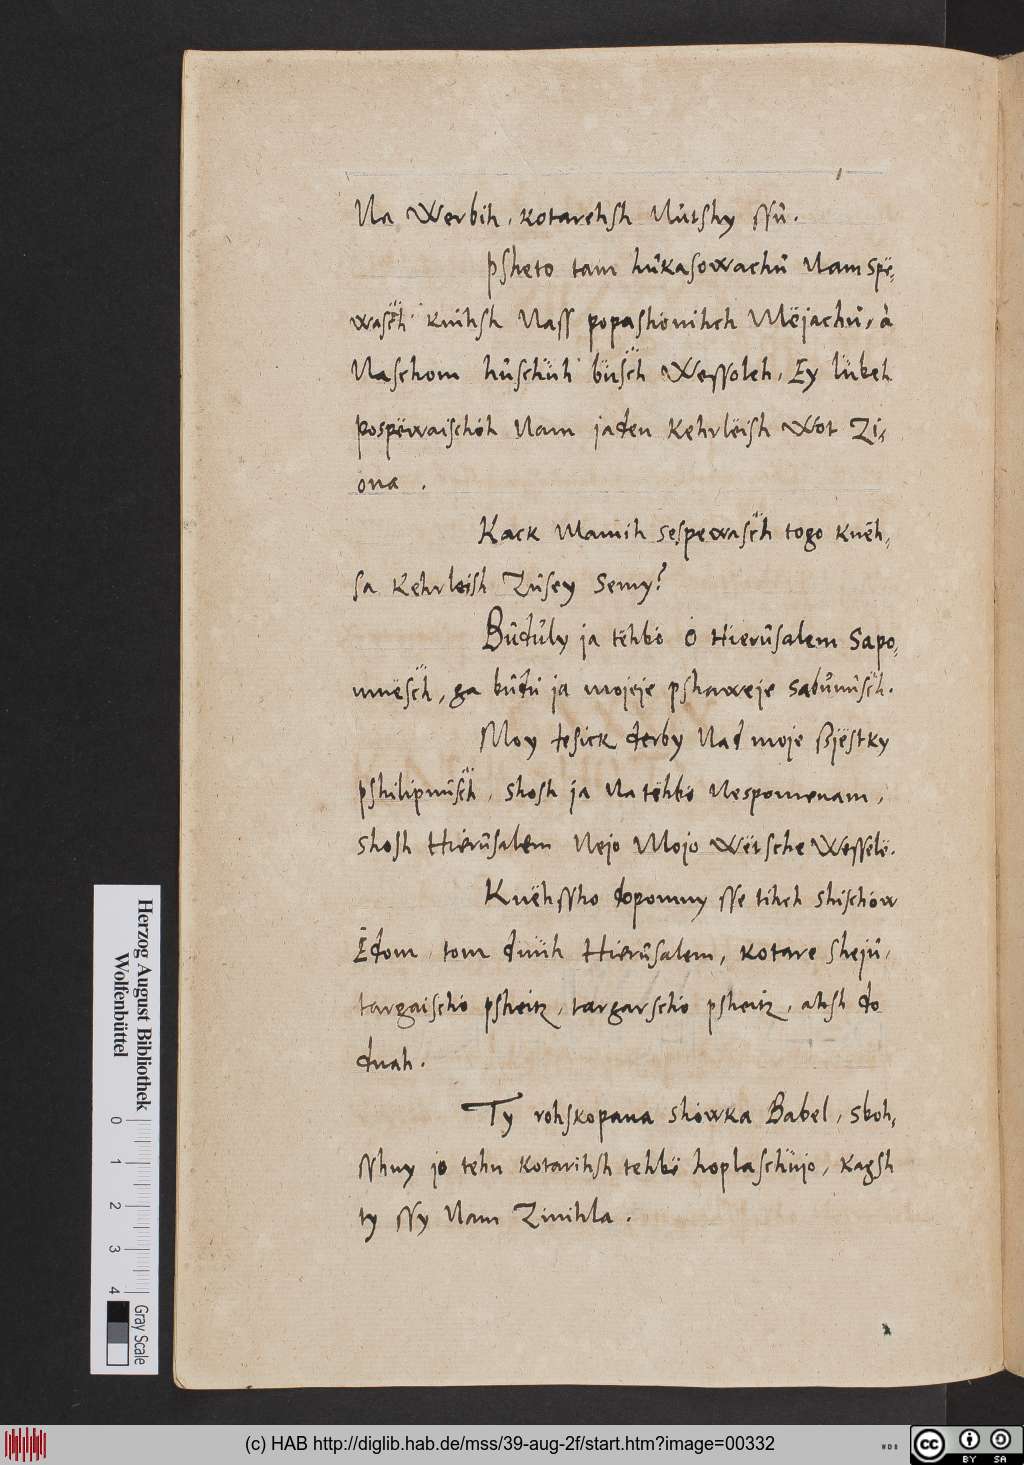 Na Werbih, kotarehsh Nůtshy ssů.
psheto tam hůkasowachů Nam spë-
wasćh knihsh Nass popashönihch Mëjachů, à
Naschom hůschüh büsćh Wessoleh, Ey lübeh
pospëwaischöh Nam jaden Kehrlëish Wot Zi-
ona .
Kack Mamih sespewasćh togo knëh-
sa Kehrleish Zůsey semy?
Bůdůly ja tëhbö O Hierůsalem sapo-
mnësćh, ga bůdů ja mojeje pshaweje sabůnůsćh.
Moy jesick derby Nad moje Bjëstky
pshilipnůsćh, shosh ja Na tëhbö Nespomenam,
shosh Hierůsalem Nejo Mojo wëtsche Wessëlë.
Knëhssho dopomny sse tihch shischöw
Edom, tom dnüh Hierůsalem, kotare shejů,
targaischö psheitz, targarschö psheitz, ahsh do
dnah.
Ty rohskopana shöwka Babel, sboh-
sshny jo tehn kotarihsh tehbë hoplaschüjo, kagsh
ty ssy Nam Zinihla.
Herzog August Bibliothek
Wolfenbüttel
0 1 2 3 4
Gray Scale
(c) HAB http://diglib.hab.de/mss/39-aug-2f/start.htm?image=00332
WDB
cc
BY SA